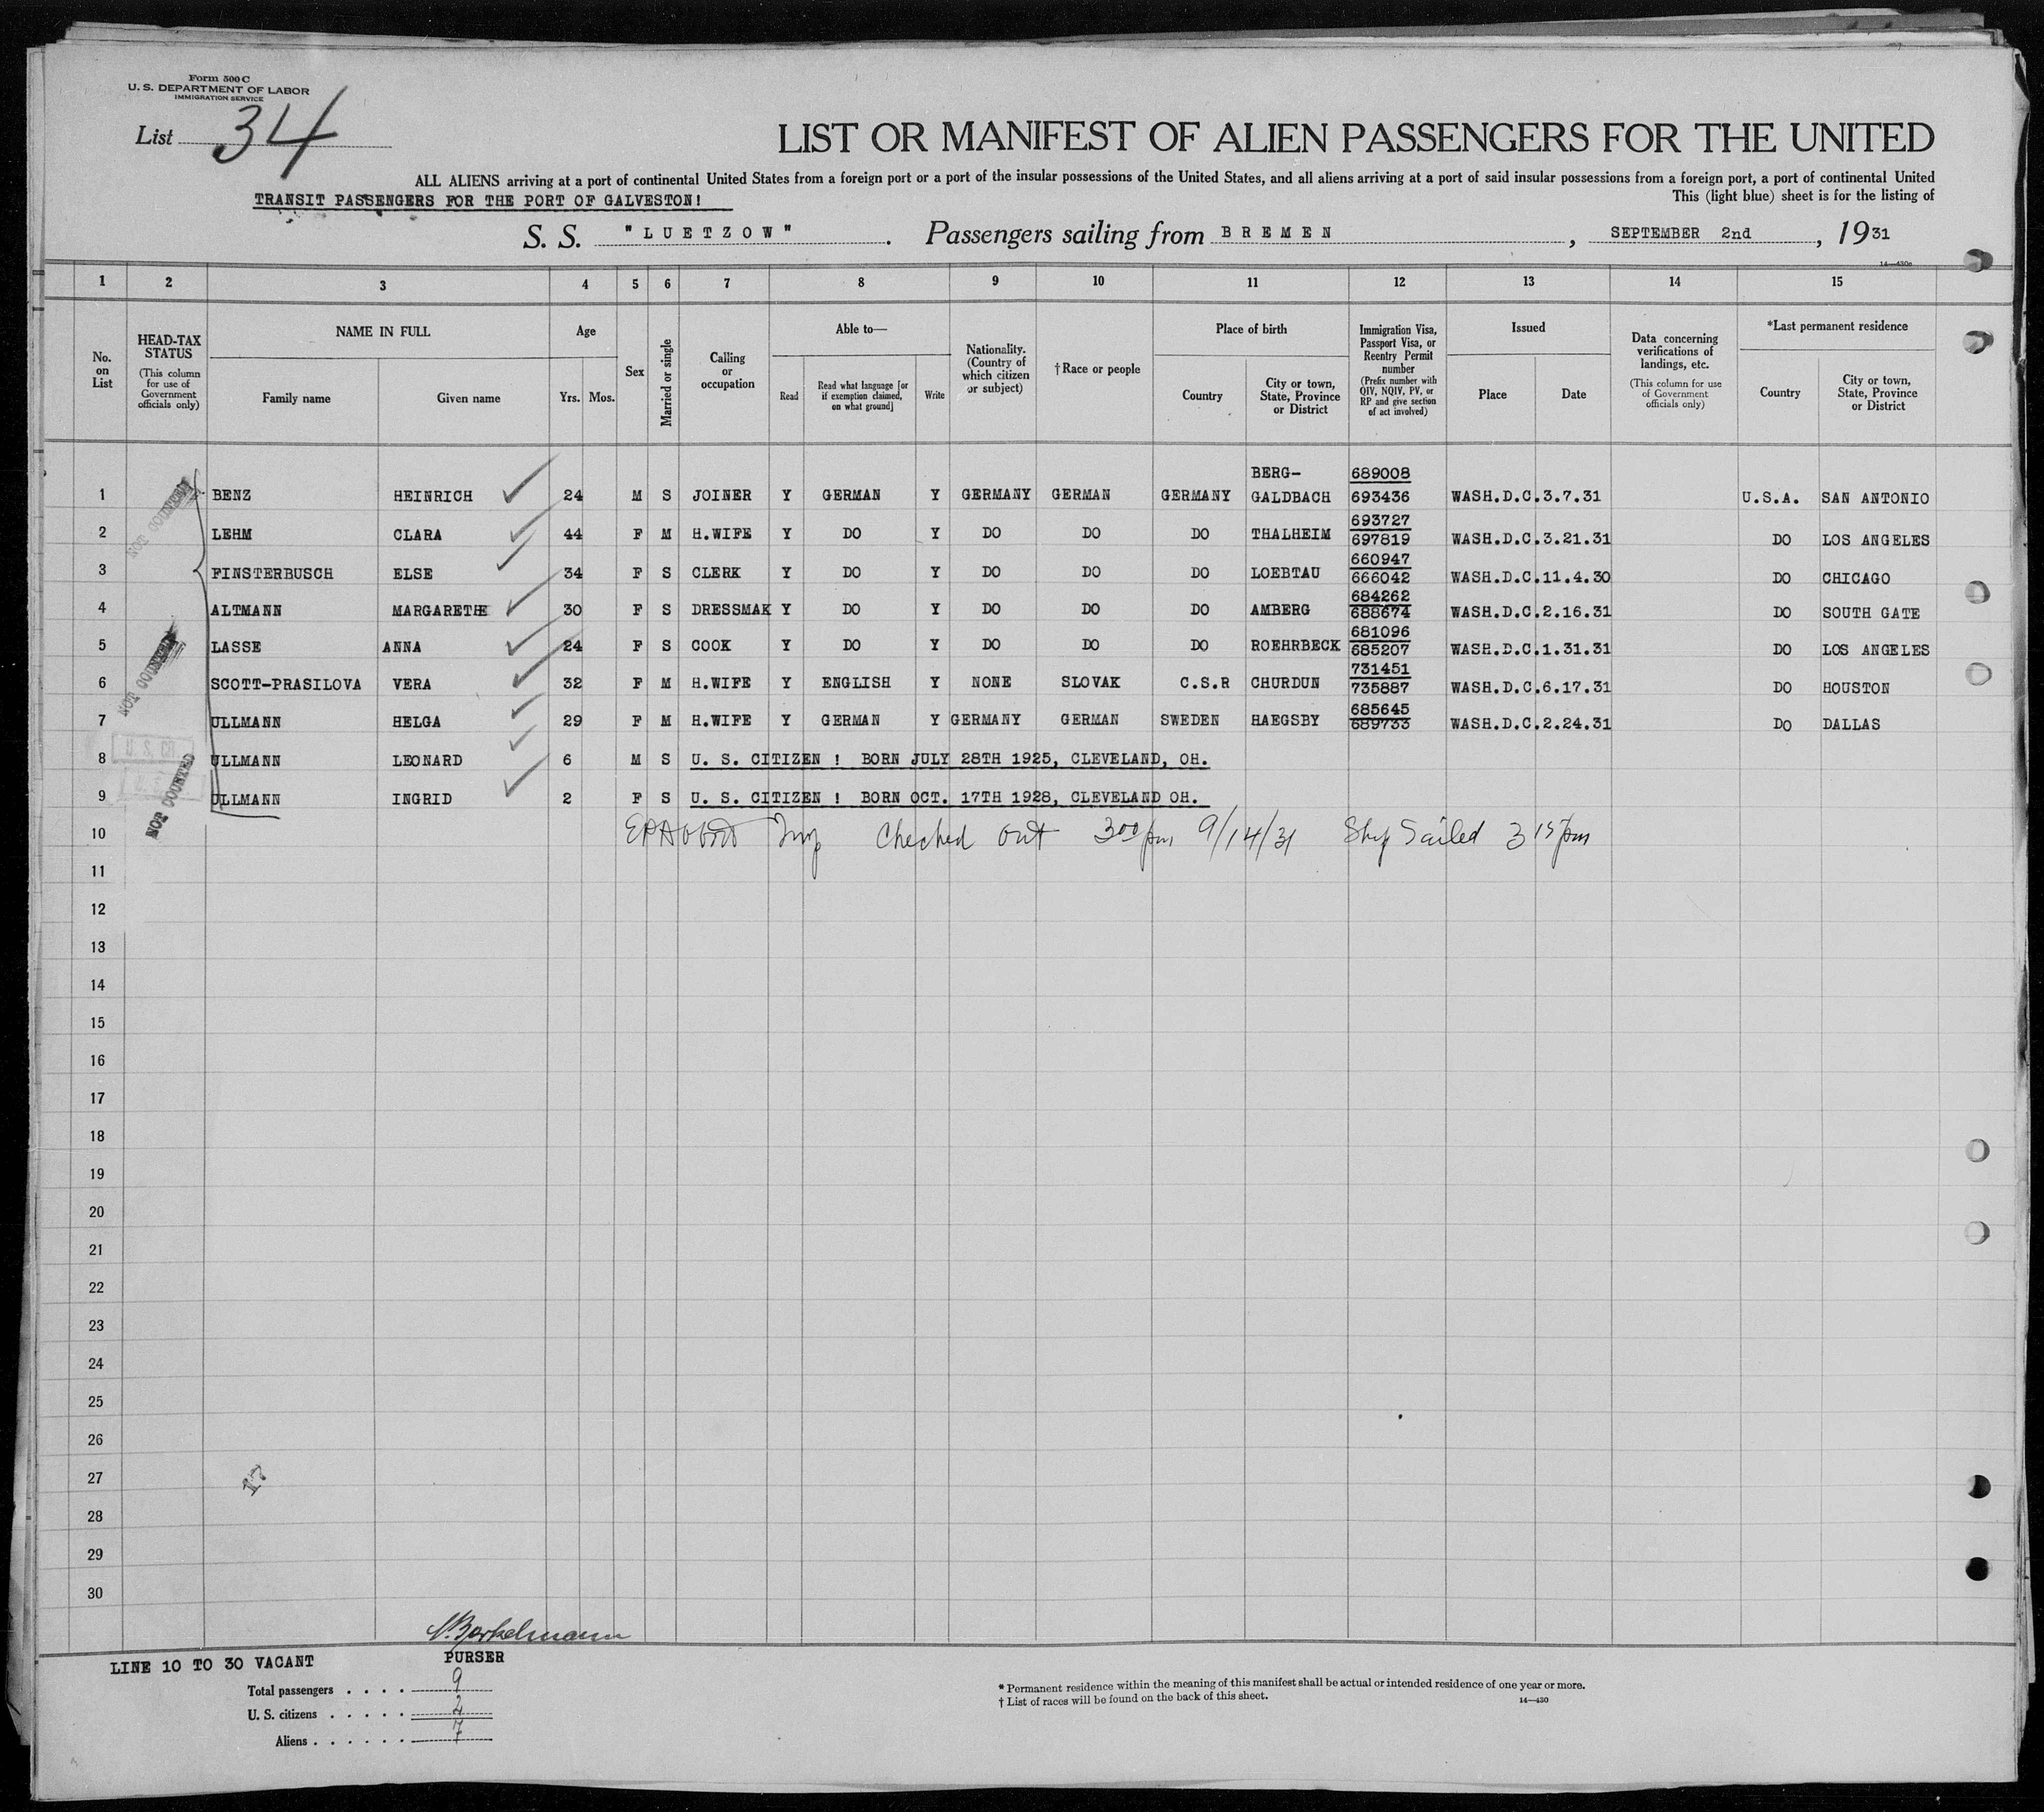 Form 500 C
U. S. DEPARTMENT OF LABOR
IMMIGRATION SERVICE
List 34
LIST OR MANIFEST OF ALIEN PASSENGERS FOR THE UNITED
ALL ALIENS arriving at a port of continental United States from a foreign port or a port of the insular possessions of the United States, and all aliens arriving at a port of said insular possessions from a foreign port, a port of continental United
TRANSIT PASSENGERS FOR THE PORT OF GALVESTON!
This (light blue) sheet is for the listing of
S. S. "LUETZOW". Passengers sailing from BREMEN, SEPTEMBER 2nd, 1931
1 2 3 4 5 6 7 8 9 10 11 12 13 14 15
No. on List
HEAD-TAX STATUS (This column for use of Government officials only)
NAME IN FULL
Family name Given name
Age
Yrs. Mos.
Sex
Married or single
Calling or occupation
Able to—
Read Read what language [or if exemption claimed, on what ground] Write
Nationality. (Country of which citizen or subject)
†Race or people
Place of birth
Country City or town, State, Province or District
Immigration Visa, Passport Visa, or Reentry Permit number (Prefix number with QIV, NQIV, PV, or RP and give section of act involved)
Issued
Place Date
Data concerning verifications of landings, etc. (This column for use of Government officials only)
*Last permanent residence
Country City or town, State, Province or District
BERG- 689008
1 BENZ HEINRICH 24 M S JOINER Y GERMAN Y GERMANY GERMAN GERMANY GALDBACH 693436 WASH.D.C. 3.7.31 U.S.A. SAN ANTONIO
693727
2 LEHM CLARA 44 F M H.WIFE Y DO Y DO DO DO THALHEIM 697819 WASH.D.C. 3.21.31 DO LOS ANGELES
660947
3 FINSTERBUSCH ELSE 34 F S CLERK Y DO Y DO DO DO LOEBTAU 666042 WASH.D.C. 11.4.30 DO CHICAGO
684262
4 ALTMANN MARGARETHE 30 F S DRESSMAK Y DO Y DO DO DO AMBERG 688674 WASH.D.C. 2.16.31 DO SOUTH GATE
681096
5 LASSE ANNA 24 F S COOK Y DO Y DO DO DO ROEHRBECK 685207 WASH.D.C. 1.31.31 DO LOS ANGELES
731451
6 SCOTT-PRASILOVA VERA 32 F M H.WIFE Y ENGLISH Y NONE SLOVAK C.S.R CHURDUN 735887 WASH.D.C. 6.17.31 DO HOUSTON
685645
7 ULLMANN HELGA 29 F M H.WIFE Y GERMAN Y GERMANY GERMAN SWEDEN HAEGSBY 689733 WASH.D.C. 2.24.31 DO DALLAS
8 ULLMANN LEONARD 6 M S U. S. CITIZEN ! BORN JULY 28TH 1925, CLEVELAND, OH.
9 ULLMANN INGRID 2 F S U. S. CITIZEN ! BORN OCT. 17TH 1928, CLEVELAND OH.
NOT COUNTED
NOT COUNTED
U. S. CIT.
NOT COUNTED
10 Checked out 3 00 pm 9/14/31 Ship Sailed 3 15 pm
11
12
13
14
15
16
17
18
19
20
21
22
23
24
25
26
27
17
28
29
30
PURSER
LINE 10 TO 30 VACANT
Total passengers . . . . 9
U. S. citizens . . . . . 2
Aliens . . . . . . 7
* Permanent residence within the meaning of this manifest shall be actual or intended residence of one year or more.
† List of races will be found on the back of this sheet.
14—430